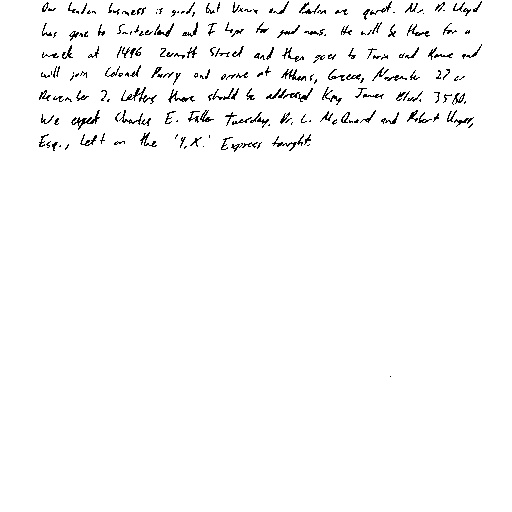 Our London business is good, but Vienna and Berlin are quiet. Mr. D. Lloyd
has gone to Switzerland and I hope for good news. He will be there for a
week at 1496 Zermott Street and then goes to Turin and Rome and
will join Colonel Parry and arrive at Athens, Greece, November 27 or
December 2. Letters there should be addressed King James Blvd. 3580.
We expect Charles E. Fuller Tuesday. Dr. L. McQuaid and Robert Unger,
Esq., left on the 'Y.X.' Express tonight.